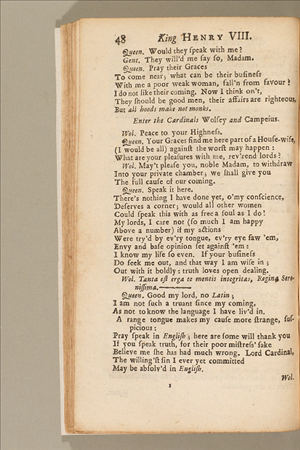 48 King HENRY VIII.
Queen. Would they speak with me?
Gent. They will'd me say so, Madam.
Queen. Pray their Graces
To come near; what can be their business
With me a poor weak woman, fall'n from favour?
I do not like their coming. Now I think on't,
They should be good men, their affairs are righteous,
But all hoods make not monks.
Enter the Cardinals Wolsey and Campeius.
Wol. Peace to your Highness.
Queen. Your Graces find me here part of a House-wife,
(I would be all) against the worst may happen:
What are your pleasures with me, rev'rend lords?
Wol. May't please you, noble Madam, to withdraw
Into your private chamber; we shall give you
The full cause of our coming.
Queen. Speak it here.
There's nothing I have done yet, o'my conscience,
Deserves a corner; would all other women
Could speak this with as free a soul as I do!
My lords, I care not (so much I am happy
Above a number) if my actions
Were try'd by ev'ry tongue, ev'ry eye saw 'em,
Envy and base opinion set against 'em;
I know my life so even. If your business
Do seek me out, and that way I am wise in;
Out with it boldly: truth loves open dealing.
Wol. Tanta est erga te mentis integritas, Regina Sere-
nissima.
Queen. Good my lord, no Latin;
I am not such a truant since my coming,
As not to know the language I have liv'd in.
A range tongue makes my cause more strange, sus-
picious:
Pray speak in English; here are some will thank you
If you speak truth, for their poor mistress' sake
Believe me she has had much wrong. Lord Cardinal,
The willing'st sin I ever yet committed
May be absolv'd in English.
Wol.